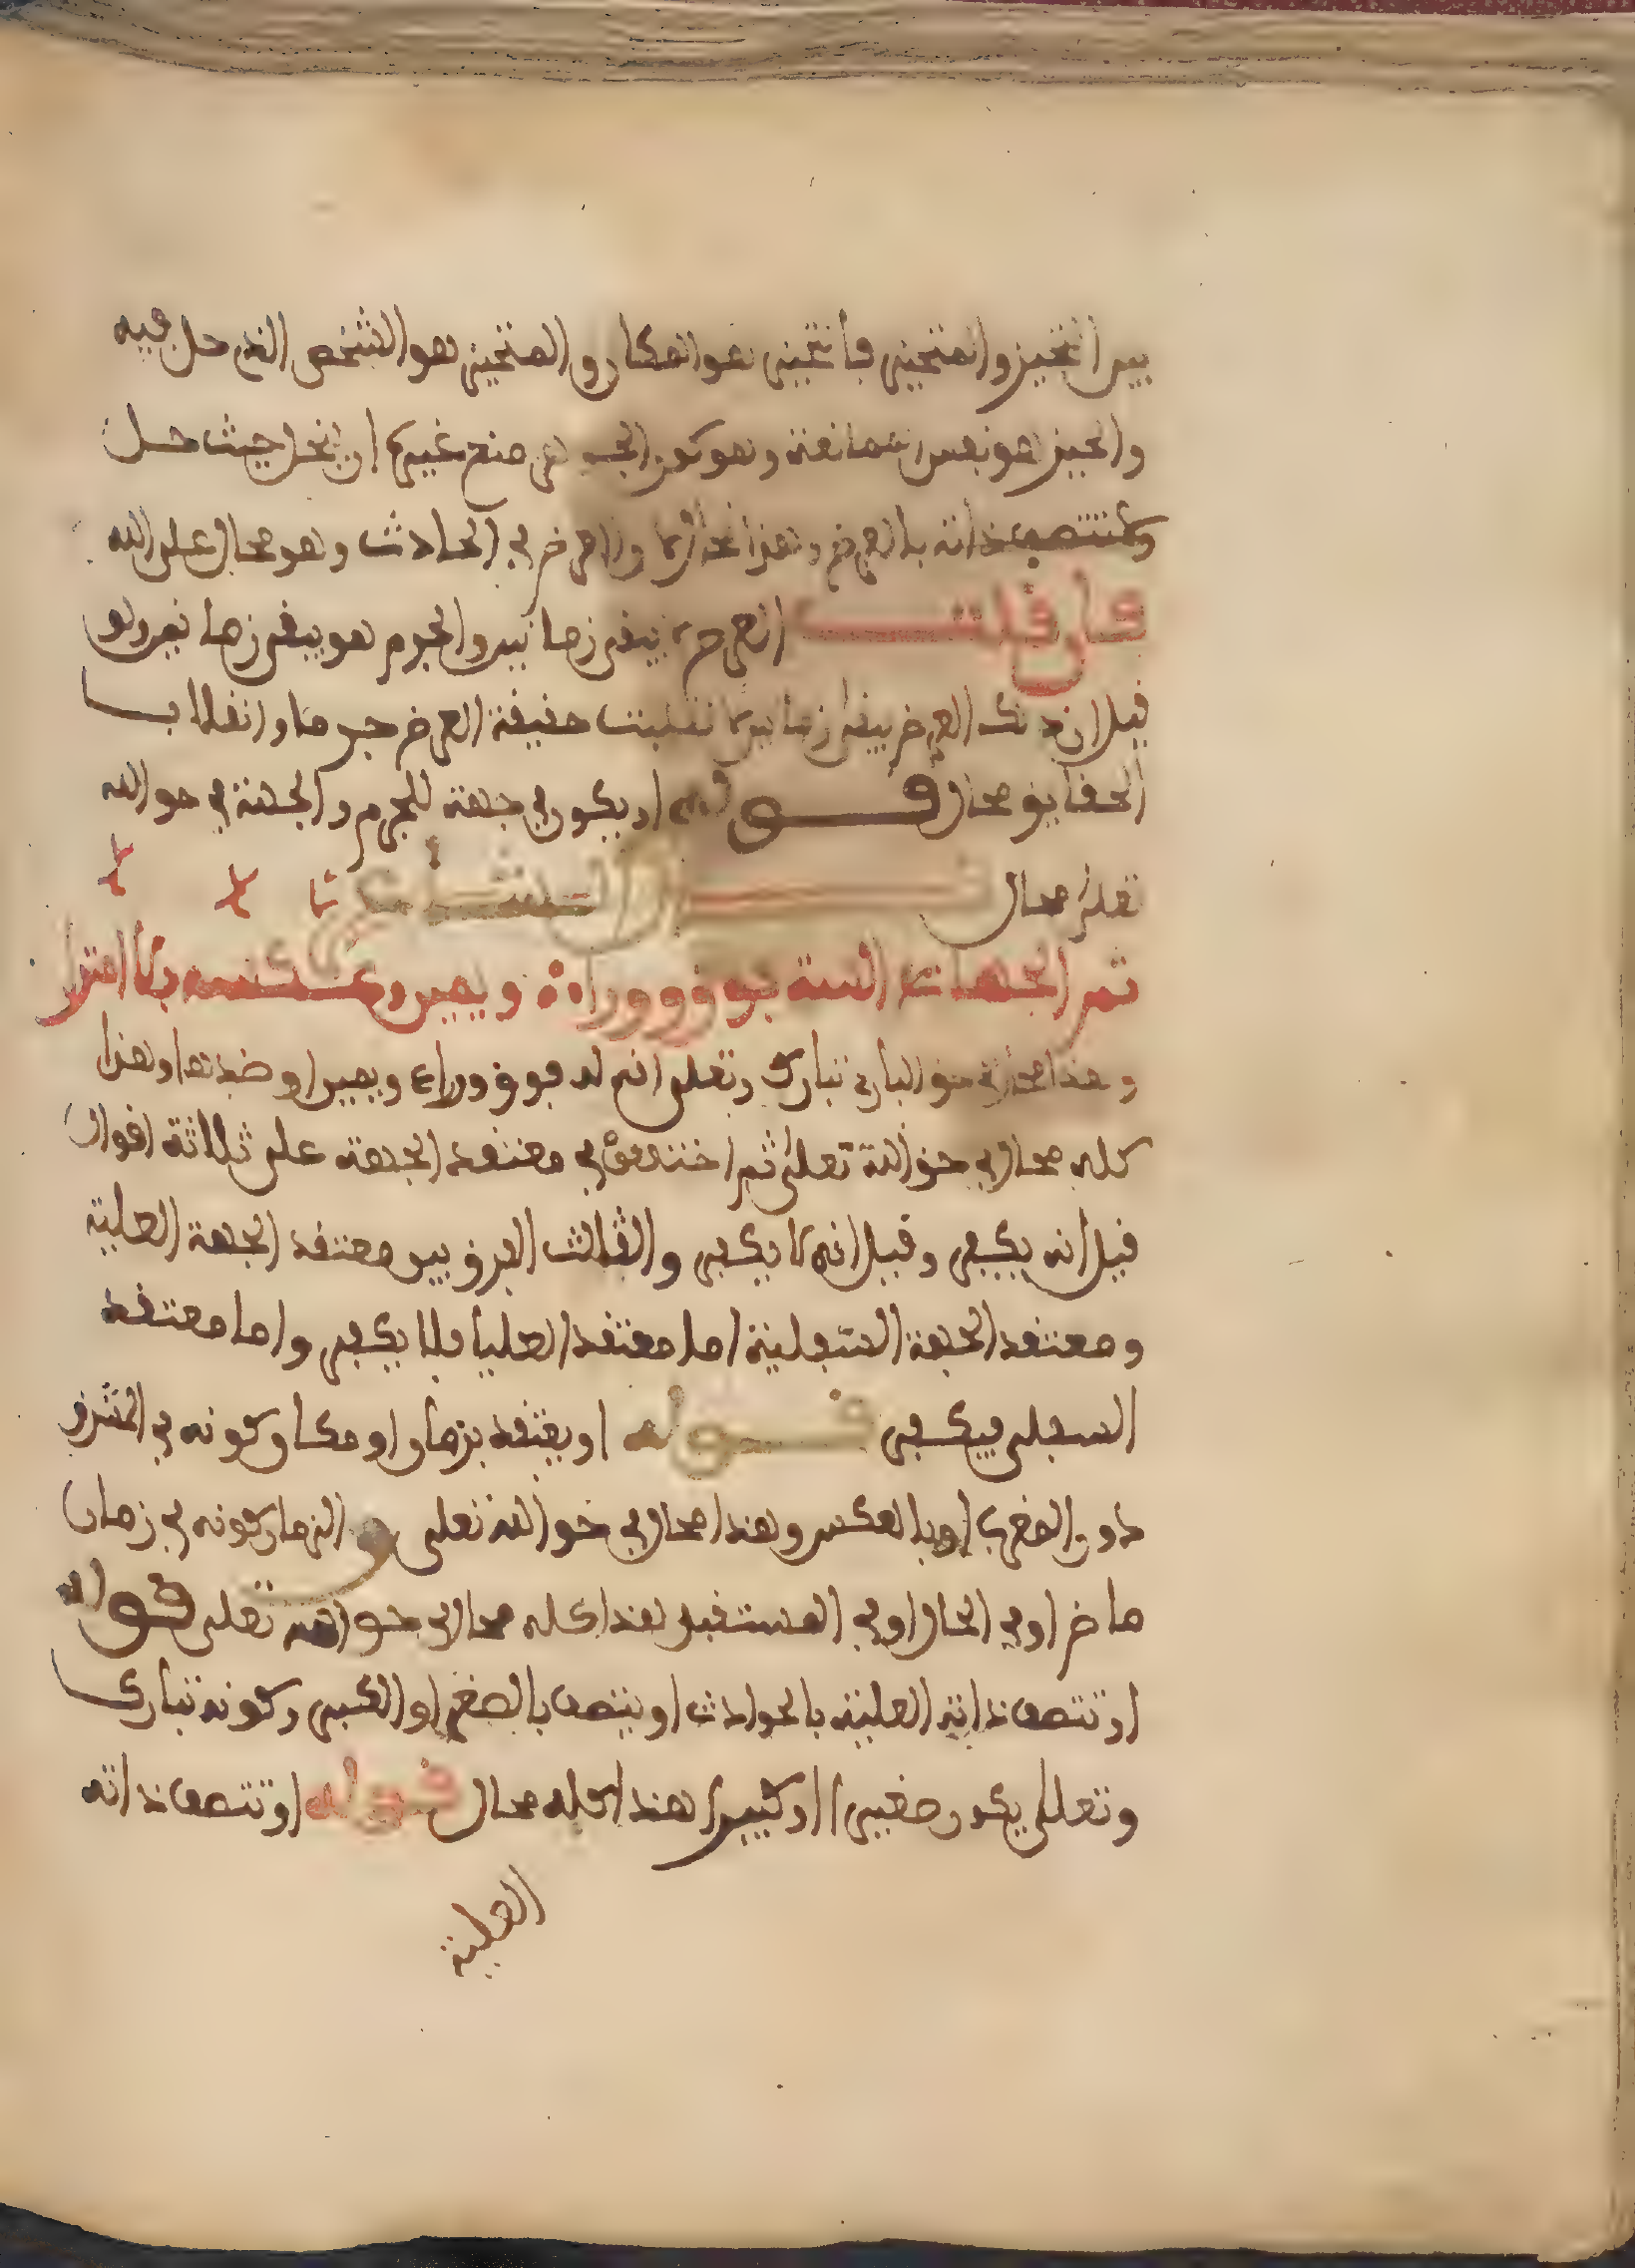 بين التحيز والمتحيز فالتحيز هو المكان والمتحيز هو الشخص الذي حل فيه
والحيز هو نفس الممانعة وهو كون الجوهر منع غيره ان يحل حيث حل
ولا تتصف ذاته بالعرض وهذا محال لان العرض في الحادث وهو محال على الله
فان قلت العرض لا يبقى زمانين والجرم هو يبقى زمانين ولو
قيل ان ذلك العرض يبقى زمانين لانقلبت حقيقة العرض جرما وانقلاب
الحقايق محال قوله او يكون في جهة للجرم والجهة في حق الله
تعلى محال قال الشاعر
ثم الجهات الستة فوق ووراء ويمين وعكسه بلا امترا
وهذا محال في حق البارئ تبارك وتعلى انه له فوق ووراء ويمين او ضدها وهذا
كله محال في حق الله تعلى ثم اختلفوا في معتقد الجهة على ثلاثة اقوال
قيل انه يكفر وقيل انه لا يكفر والثالث الفرق بين معتقد الجهة العلية
ومعتقد الجهة السفلية اما معتقد العليا فلا يكفر واما معتقد
السفلى فيكفر قوله او يقتيد بزمان او مكان كونه في المشرق
دون المغرب او بالعكس وهذا محال في حق الله تعلى والزمان كونه في زمان
ماض او في الحال او في المستقبل هذا كله محال في حق الله تعلى قوله
او تتصف ذاته العلية بالحوادث او يتصف بالصغر او الكبر وكونه تبارك
وتعلى يكون صغيرا او كبيرا هذا كله محال قوله او تتصف ذاته
العلية